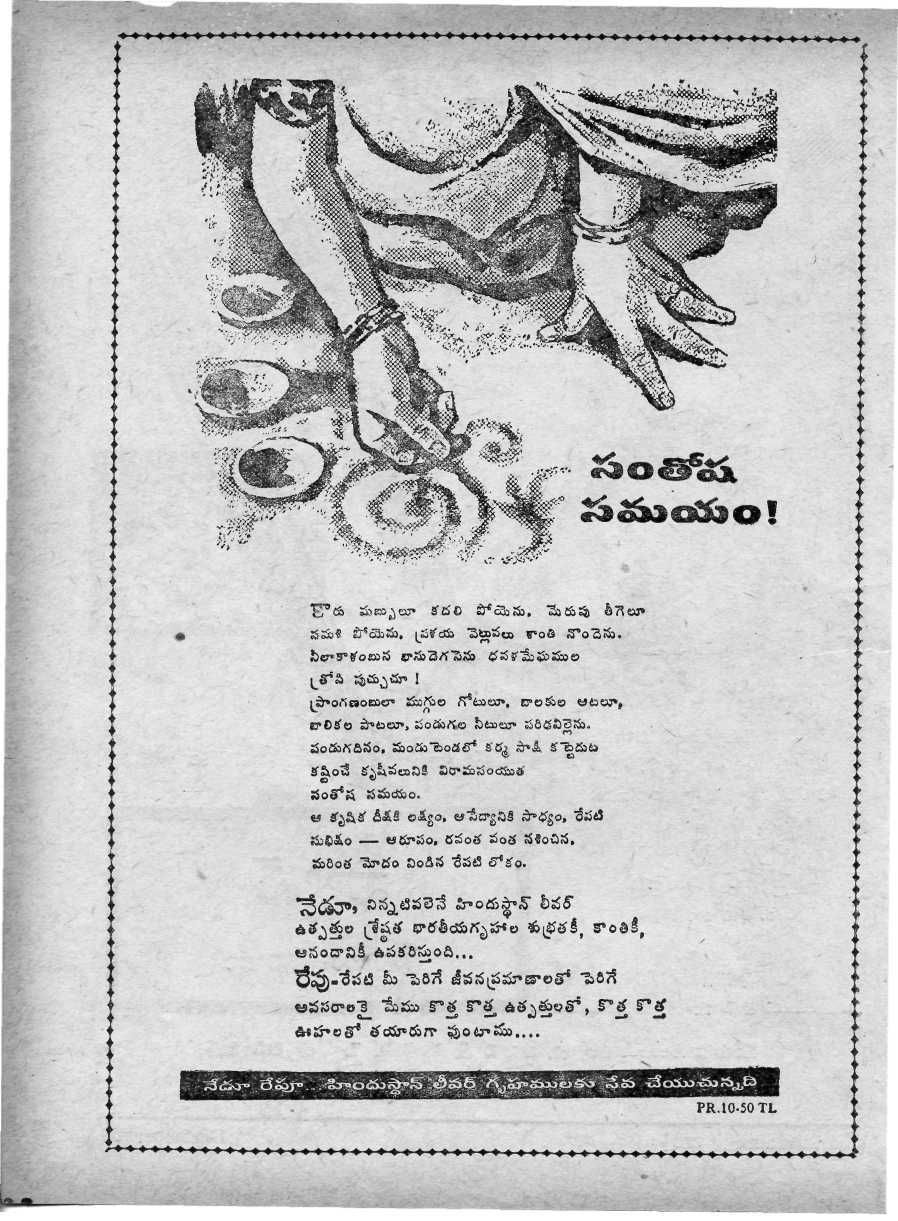 సంతోష
సమయం!
కారు మబ్బులూ కదలి పోయెను, మెరుపు తీగెలూ
సమశి పోయెను, ప్రళయ వెల్లువలు శాంతి నొందెను.
నీలాకాశంబున భానుదెగసెను ధవళమేఘముల
త్రోసి పుచ్చుచూ !
ప్రాంగణంబులా ముగ్గుల గోటులూ, బాలకుల ఆటలూ,
బాలికల పాటలూ, పండుగల నీటులూ పరిఢవిల్లెను.
పండుగదినం, మండుటెండలో కర్మ సాక్షీ కట్టెదుట
కష్టించే కృషీవలునికి విరామసంయుత
సంతోష సమయం.
ఆ కృషిక దీక్షకి లక్ష్యం, ఆసేద్యానికి సాధ్యం, రేపటి
సుభిక్షం — ఆరూపం, రవంత వంత నశించిన,
మరింత మోదం నిండిన రేపటి లోకం.
నేడూ, నిన్నటివలెనే హిందుస్థాన్ లీవర్
ఉత్పత్తుల శ్రేష్ఠత భారతీయగృహాల శుభ్రతకీ, కాంతికీ,
ఆనందానికీ ఉపకరిస్తుంది...
రేపు-రేపటి మీ పెరిగే జీవనప్రమాణాలతో పెరిగే
అవసరాలకై మేము కొత్త కొత్త ఉత్పత్తులతో, కొత్త కొత్త
ఊహలతో తయారుగా వుంటాము....
నేడూ రేపూ...హిందుస్థాన్ లీవర్ గృహములకు సేవ చేయుచున్నది
PR.10-50 TL